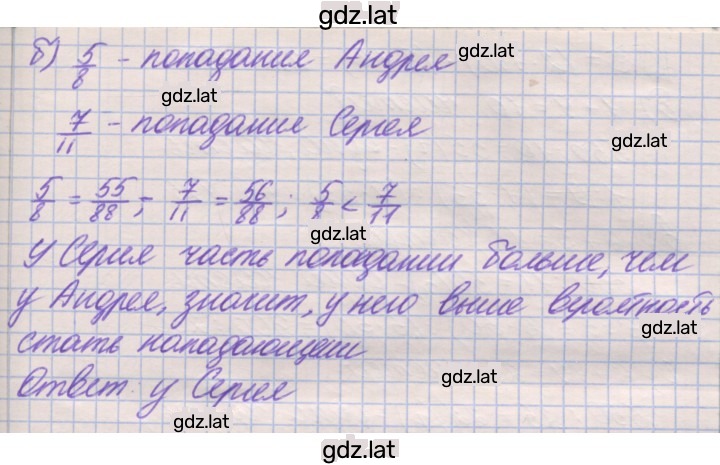 gdz.lat
б) 5/8 - попадание Андрея
gdz.lat
7/11 - попадание Сергея
gdz.lat
5/8 = 55/88; 7/11 = 56/88; 5/8 < 7/11
gdz.lat
У Сергея часть попадании больше, чем
у Андрея, значит, у него выше вероятность
gdz.lat
стать нападающеи
gdz.lat
Ответ: у Сергея
gdz.lat
gdz.lat